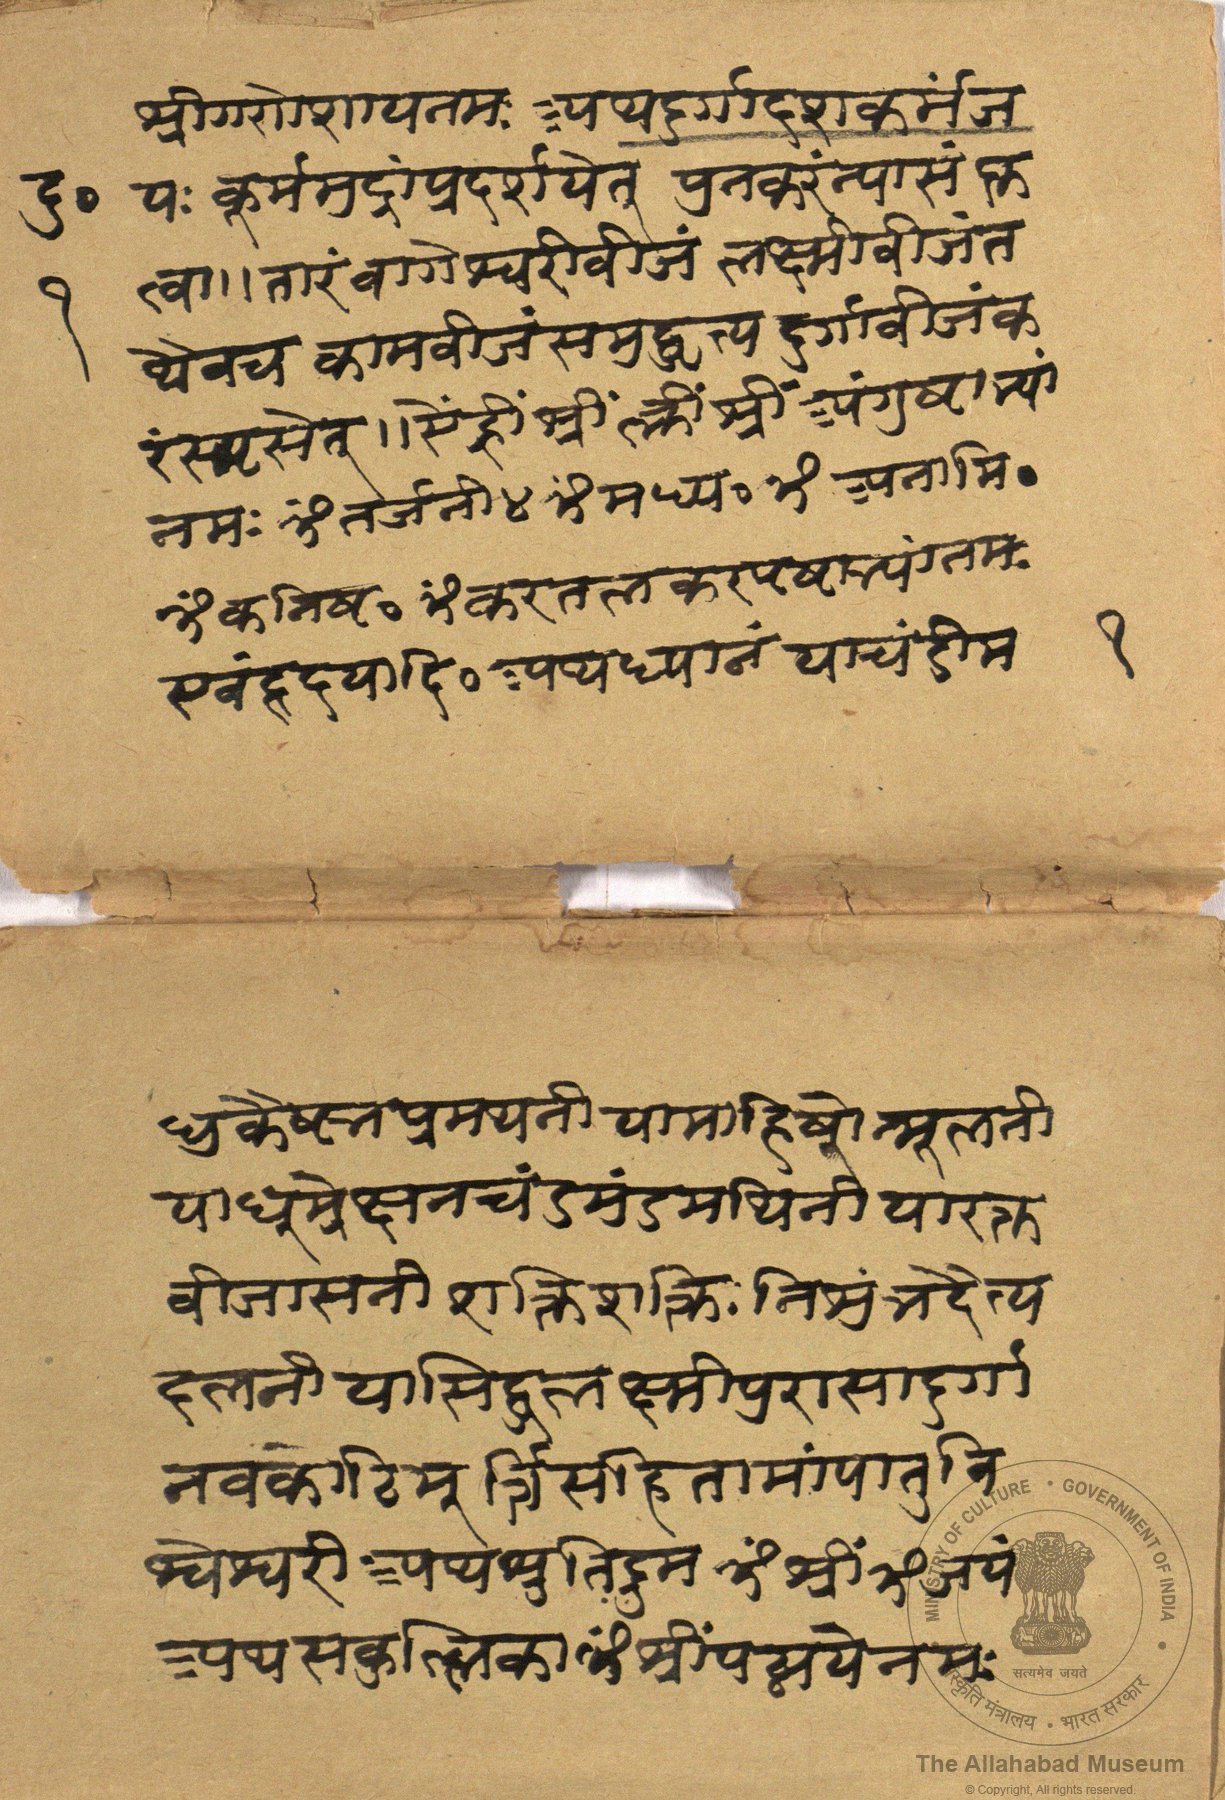 श्रीगणेशायनमः अथदुर्गादशकर्मज
दु० यः कूर्ममुद्रांप्रदर्शयेत् पुनकरंन्यासं कृ
१ त्वा॥ तारंवागेश्वरीवीजं लक्ष्मीवीजंत
थैवच कामवीजंसमुद्धृत्य दुर्गावीजंक
रंन्यसेत्॥ ऐंह्रीं श्रीं क्लीं श्रीं अंगुष्टाभ्यां
नमः ॐतर्जनी४ ॐमध्य० ॐ अनामि०
ॐकनिष्ट० ॐकरतलकरपृष्टाभ्यंनमः
एवंहृदयादि० अथध्यानं याचंडीम १
धुकैटभप्रमथनी यामाहिषोन्मूलनी
याधूम्रेक्षनचंडमुंडमथिनी यारक्त
वीजासनी शक्तिशक्तिः निशुंभदैत्य
दलनी यासिद्धलक्ष्मीपरासादुर्गा
नवकोटिमूर्त्तिसहितामांपातुवि
श्वेश्वरी अथश्रुतिद्रुम ॐ श्रीं ॐजपं
अथसकुल्लिका ॐ श्रीं
MINISTRY OF CULTURE • GOVERNMENT OF INDIA
सत्यमेव जयते
संस्कृति मंत्रालय • भारत सरकार
The Allahabad Museum
© Copyright, All rights reserved.